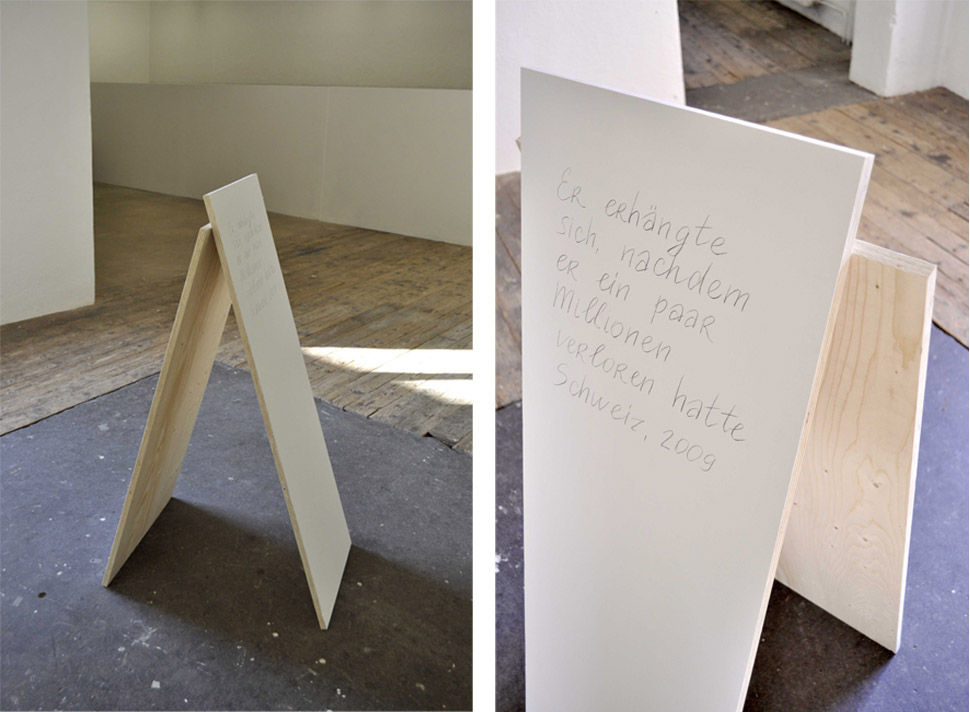 Er erhängte
sich, nachdem
er ein paar
Millionen
verloren hatte
Schweiz, 2009